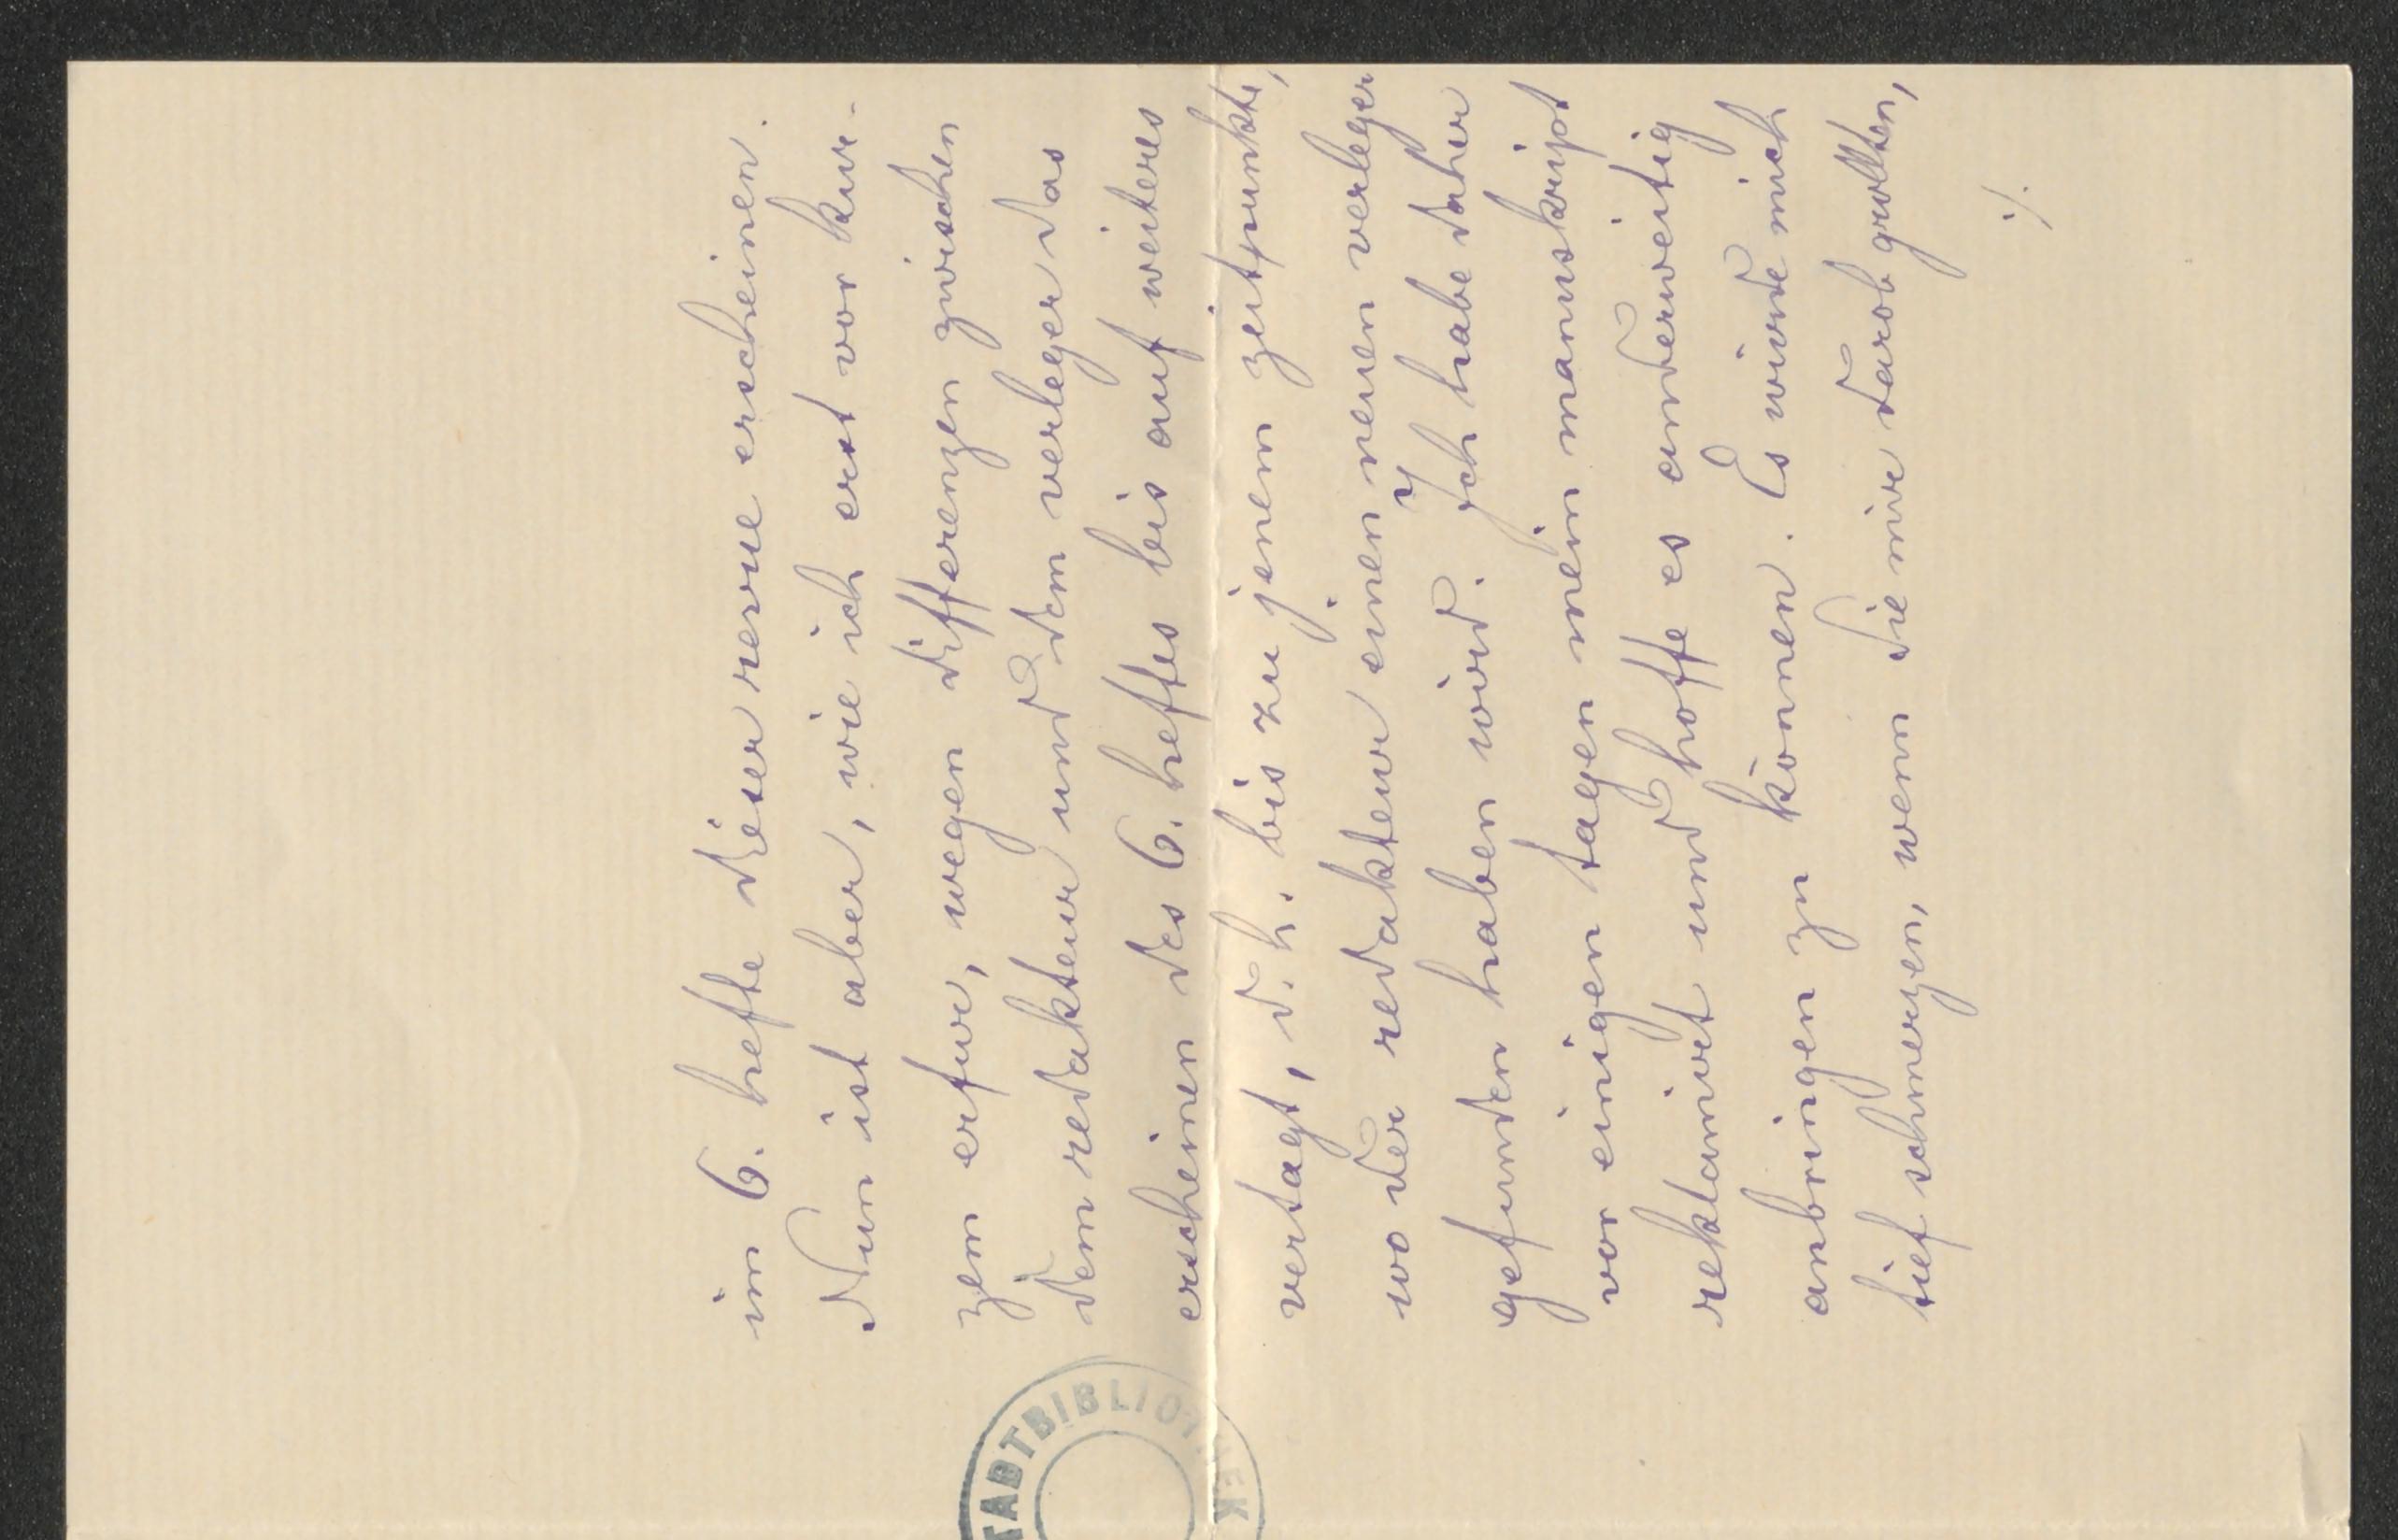 im 6. hefte dieser revue erscheinen.
Nun ist aber, wie ich erst vor kur-
zem erfur, wegen differenzen zwischen
dem redakteur und dem verleger das
erscheinen des 6. heftes bis auf weiteres
vertagt, d. h. bis zu jenem zeitpunkte,
wo der redakteur einen neuen verleger
gefunden haben wird. Ich habe daher
vor einigen tagen mein manuskript
reklamirt und hoffe es anderweitig
anbringen zu können. Es würde mich
tief schmerzen, wenn Sie mir darob grollten,
./.
STADTBIBLIOTHEK